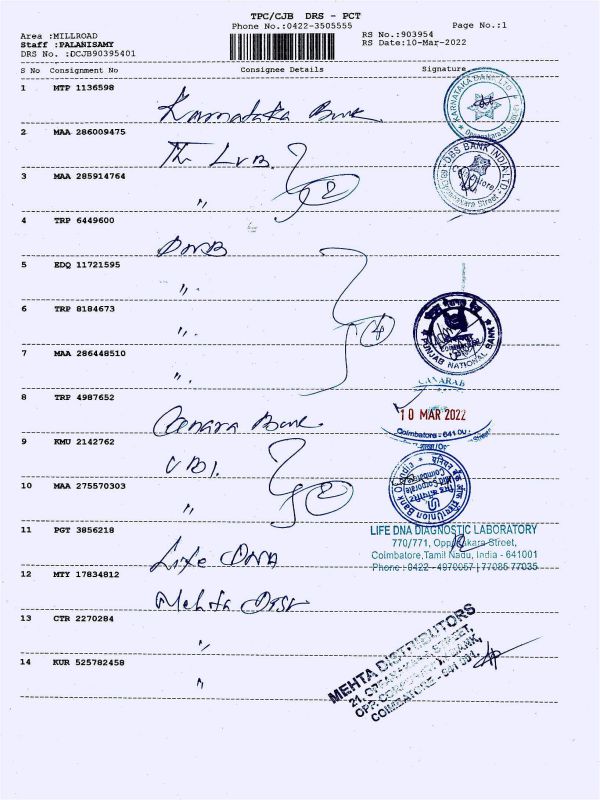 TPC/CJB DRS - PCT
Phone No.:0422-3505555
Page No.:1
Area :MILLROAD
RS No.:903954
Staff :PALANISAMY
RS Date:10-Mar-2022
DRS No. :DCJB90395401
S No Consignment No Consignee Details Signature
1 MTP 1136598
Karnataka Bank
KARNATAKA BANK LTD
2 MAA 286009475
The LVB
DBS BANK INDIA LTD
3 MAA 285914764
"
2
4 TRP 6449600
PNB
5 EDQ 11721595
"
6 TRP 8184673
"
4
PUNJAB NATIONAL BANK
7 MAA 286448510
"
CANARA B
8 TRP 4987652
Canara Bank
10 MAR 2022
Coimbatore - 641 00
Street
9 KMU 2142762
UBI
Union Bank Of India
10 MAA 275570303
"
2
11 PGT 3856218
Life DNA
LIFE DNA DIAGNOSTIC LABORATORY
770/771, Street,
Coimbatore,Tamil Nadu, India - 641001
Phone : 0422 - 4970067 | 77086 77035
12 MTY 17834812
Mehta Dist
13 CTR 2270284
"
14 KUR 525782458
"
MEHTA DISTRIBUTORS
21, STREET,
OPP. BANK,
COIMBATORE - 641 001.